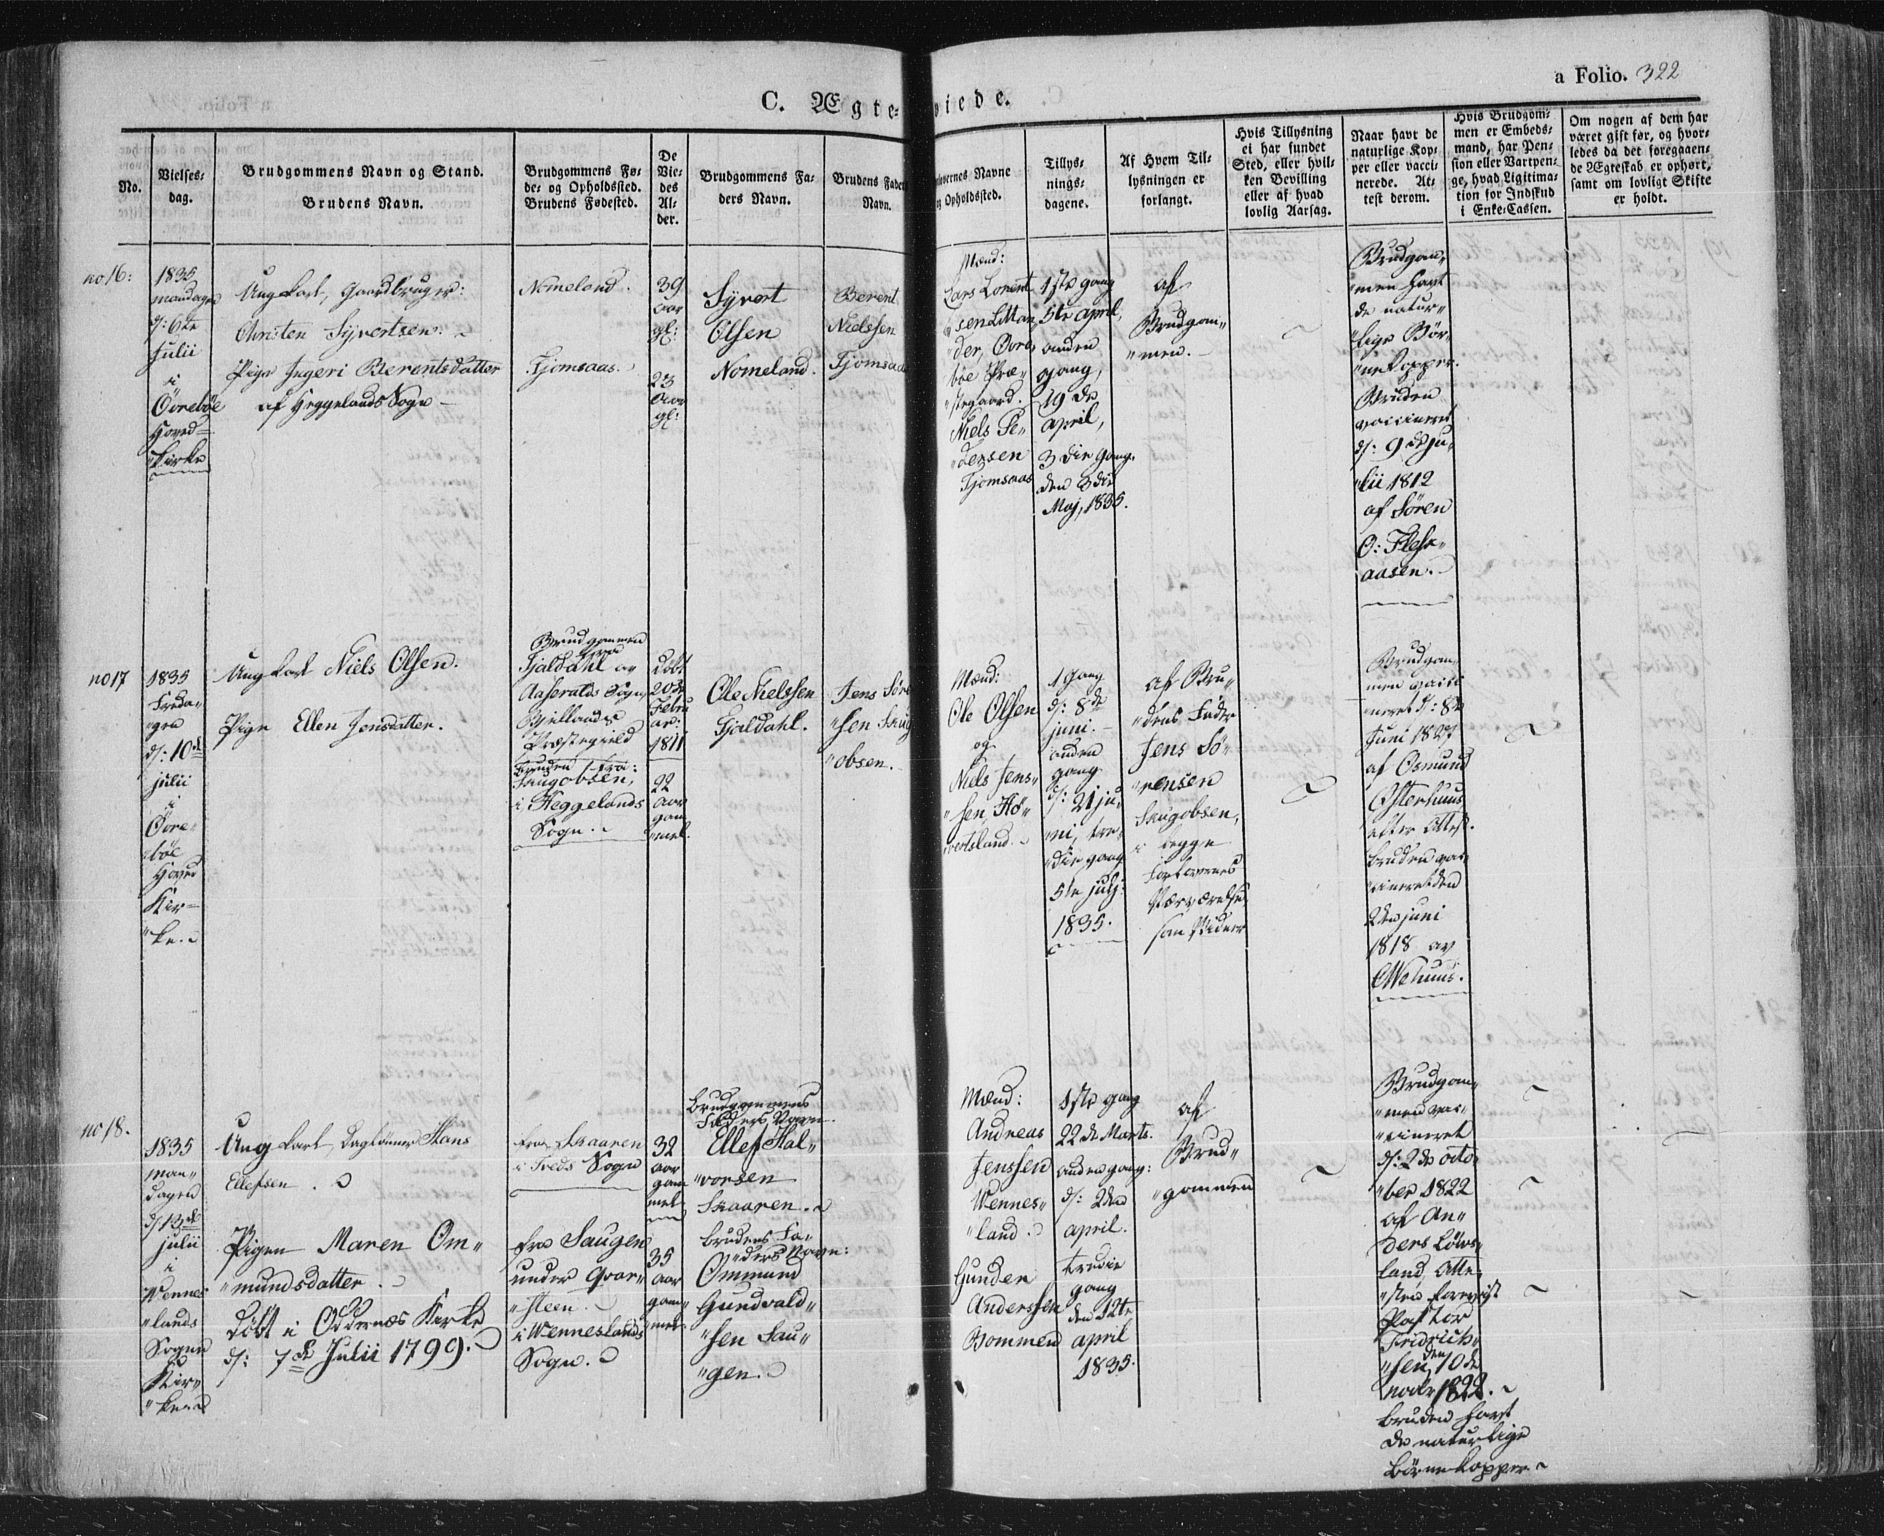 a Folio. 322
C. Ægte-
viede.
No.
Vielses-
dag.
Brudgommens Navn og Stand.
Brudens Navn.
Brudgommens Fø-
de- og Opholdssted.
Brudens Fødested.
De
Vie-
des
Al-
der.
Brudgommens Fa-
ders Navn.
Brudens Faders
Navn.
lovernes Navne
og Opholdssted.
Tillys-
nings-
dagene.
Af Hvem Til-
lysningen er
forlangt.
Hvis Tillysning
ei har fundet
Sted, eller hvil-
ken Bevilling
eller af hvad
lovlig Aarsag.
Naar havt de
naturlige Kop-
per eller vacci-
nerede. At-
test derom.
Hvis Brudgom-
men er Embeds-
mand, har Pen-
sion eller Vartpen-
ge, hvad Ligitima-
tion for Indskud
i Enke-Cassen.
Om nogen af dem har
været gift før, og hvor-
ledes da det foregaaen-
de Ægteskab er ophørt,
samt om lovligt Skifte
er holdt.
no 16:
1835
mandagen
d: 6te
Julii
i
Övreböe
Hoved-
"kirke
Ungkarl, Gaardbruger:
Christen Syvertsen.
Pige Ingeri Berentsdatter
af Heggelands Sogn
Nomeland.
Fjomsaas.
39
aar
gl:
23
aar
gl:
Syvert
Olsen
Nomeland.
Berent
Nielssen
Fjomsaas
Mænd:
Lars Lorent
"sen Littan
"der, Övre
böe Præ-
"stegaard.
Niels Pe-
"dersen
Fjomsaas
1ste gang
5te april,
anden
gang,
19 de
april,
3 die gang.
den 3 die
Maj, 1835.
af
Brudgom-
"men.
Brudgom-
"men havt
de natur-
lige Bør-
"nekopper.
Bruden
vaccineret
d: 9 de ju-
"lii 1812
af Sören
O: Flesk-
aasen.
no 17
1835
Freda-
gen
d: 10de
julii
i
Övre-
böe
Hoved
Kir-
"ke.
Ungkarl Niels Olsen.
Pige Ellen Jensdatter.
Brudgommen
fra
Fjaldahl av
Aaseralds Sogn,
Bjellands
Præstegield
Bruden fra:
Skugobsen,
i Heggelands
Sogn.
döbt
20de
Febru
ar:
1811
22
aar
gam
"mel.
Ole Nielssen
Fjaldahl.
Jens Söre
"sen Skug
"obsen.
Mænd:
Ole Olsen
og
Niels Jens-
"sen, Hö-
"vertsland.
1 gang
d: 8de
juni.
anden
gang
d: 21 ju-
ni, tre-
"die gang
5te julj:
1835.
af Bru-
"dens Fader
Jens Sö-
"rensen
Skugobsen,
i begge
Forlovernes
Nærværelse
som Vidner
Brudgom-
men vacci
neret d: 8de
Juni 1827
af Osmund
Østerhuus
efter Attest.
Bruden vac-
"cineret den
2den juni
1818 av
O Wehuus.
no 18.
1835
Man-
dagen
d: 13de
julii
i
Wennes
"lands
Sogne
Kir-
"ke
Ungkarl, Daglönner Hans
Ellefsen.
Pigen Maren Om-
"mundsdatter.
Döbt i Oddernæs Kirke
d: 7de Julii 1799.
fra Skaaren
i Iveds Sogn
fra Saugen
under Qvar-
"steen
i Wenneslands
Sogn.
32
aar
gam
mel
35
aar
gam-
mel
Brudgommens
Faders Navn
Ellef Hal-
"vorsen
Skaaren.
Brudens Fa-
"ders Navn:
Ommund
Gundvald-
"sen Sau-
"gen.
Mænd:
Andreas
Jenssen
Wennes-
"land.
Gunder
Anderssen
Bommen
1ste gang
22 de Marts.
anden gang:
d: 2den
april.
tredie
gang
den 12te
april
1835.
af
Brud-
"gommen
Brudgom-
"men vac-
"cineret
d: 2de octo-
"ber 1822
af An-
ders Löws-
land, Atte-
"sten forevist
Pastor
Fridrich-
"sen, den 10de
1822.
Bruden havt
de naturlige
Börnekopper